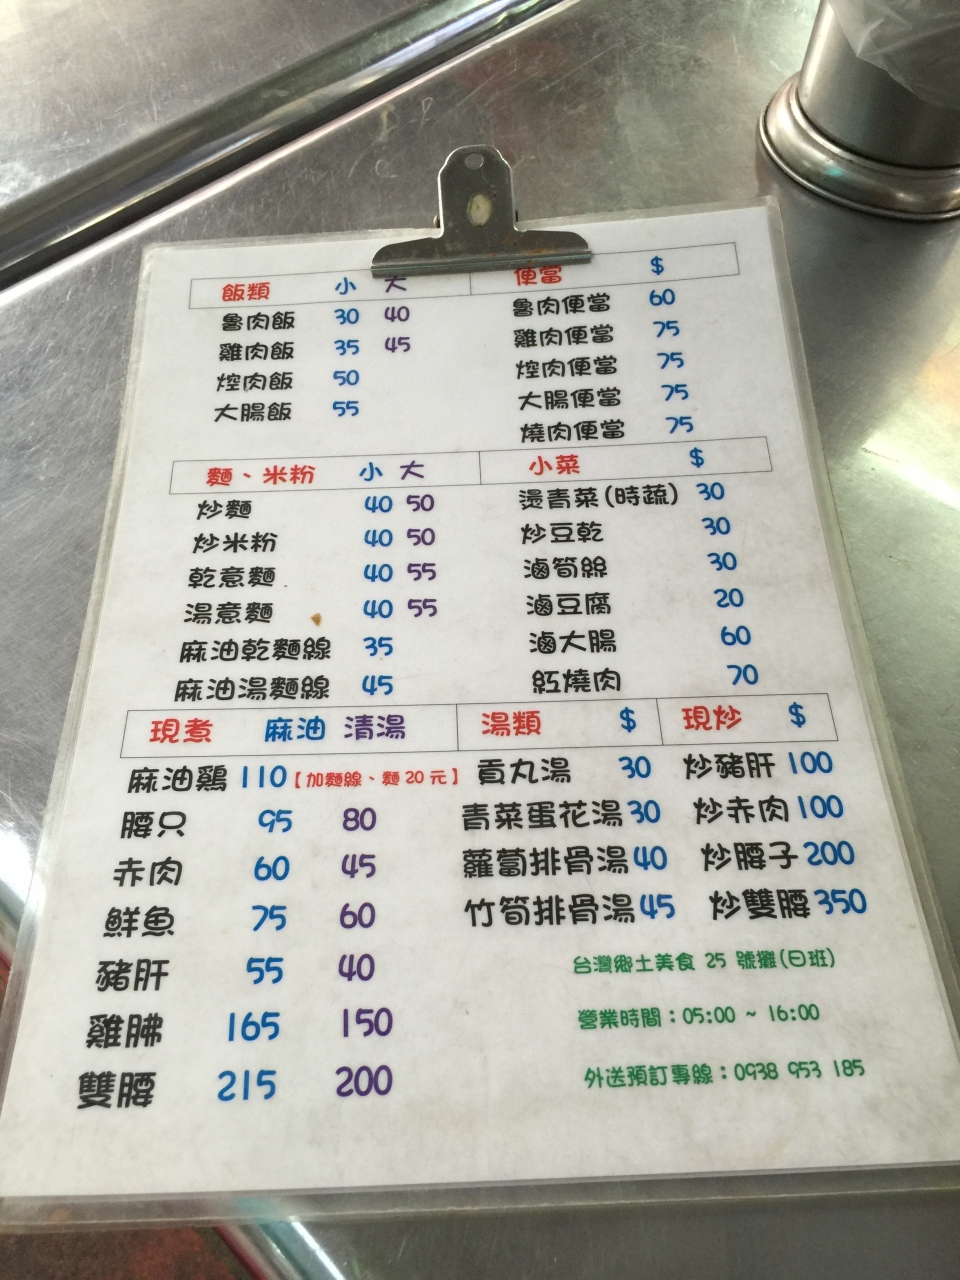 飯類 小 大
魯肉飯 30 40
雞肉飯 35 45
焢肉飯 50
大腸飯 55
便當 $
魯肉便當 60
雞肉便當 75
焢肉便當 75
大腸便當 75
燒肉便當 75
麵、米粉 小 大
炒麵 40 50
炒米粉 40 50
乾意麵 40 55
湯意麵 40 55
麻油乾麵線 35
麻油湯麵線 45
小菜 $
燙青菜(時蔬) 30
炒豆乾 30
滷筍絲 30
滷豆腐 20
滷大腸 60
紅燒肉 70
現煮 麻油 清湯
麻油鷄 110【加麵線、麵 20 元】
腰只 95 80
赤肉 60 45
鮮魚 75 60
豬肝 55 40
雞胇 165 150
雙腰 215 200
湯類 $
貢丸湯 30
青菜蛋花湯 30
蘿蔔排骨湯 40
竹筍排骨湯 45
現炒 $
炒豬肝 100
炒赤肉 100
炒腰子 200
炒雙腰 350
台灣鄉土美食 25 號攤(日班)
營業時間：05:00 ~ 16:00
外送預訂專線：0938 953 185